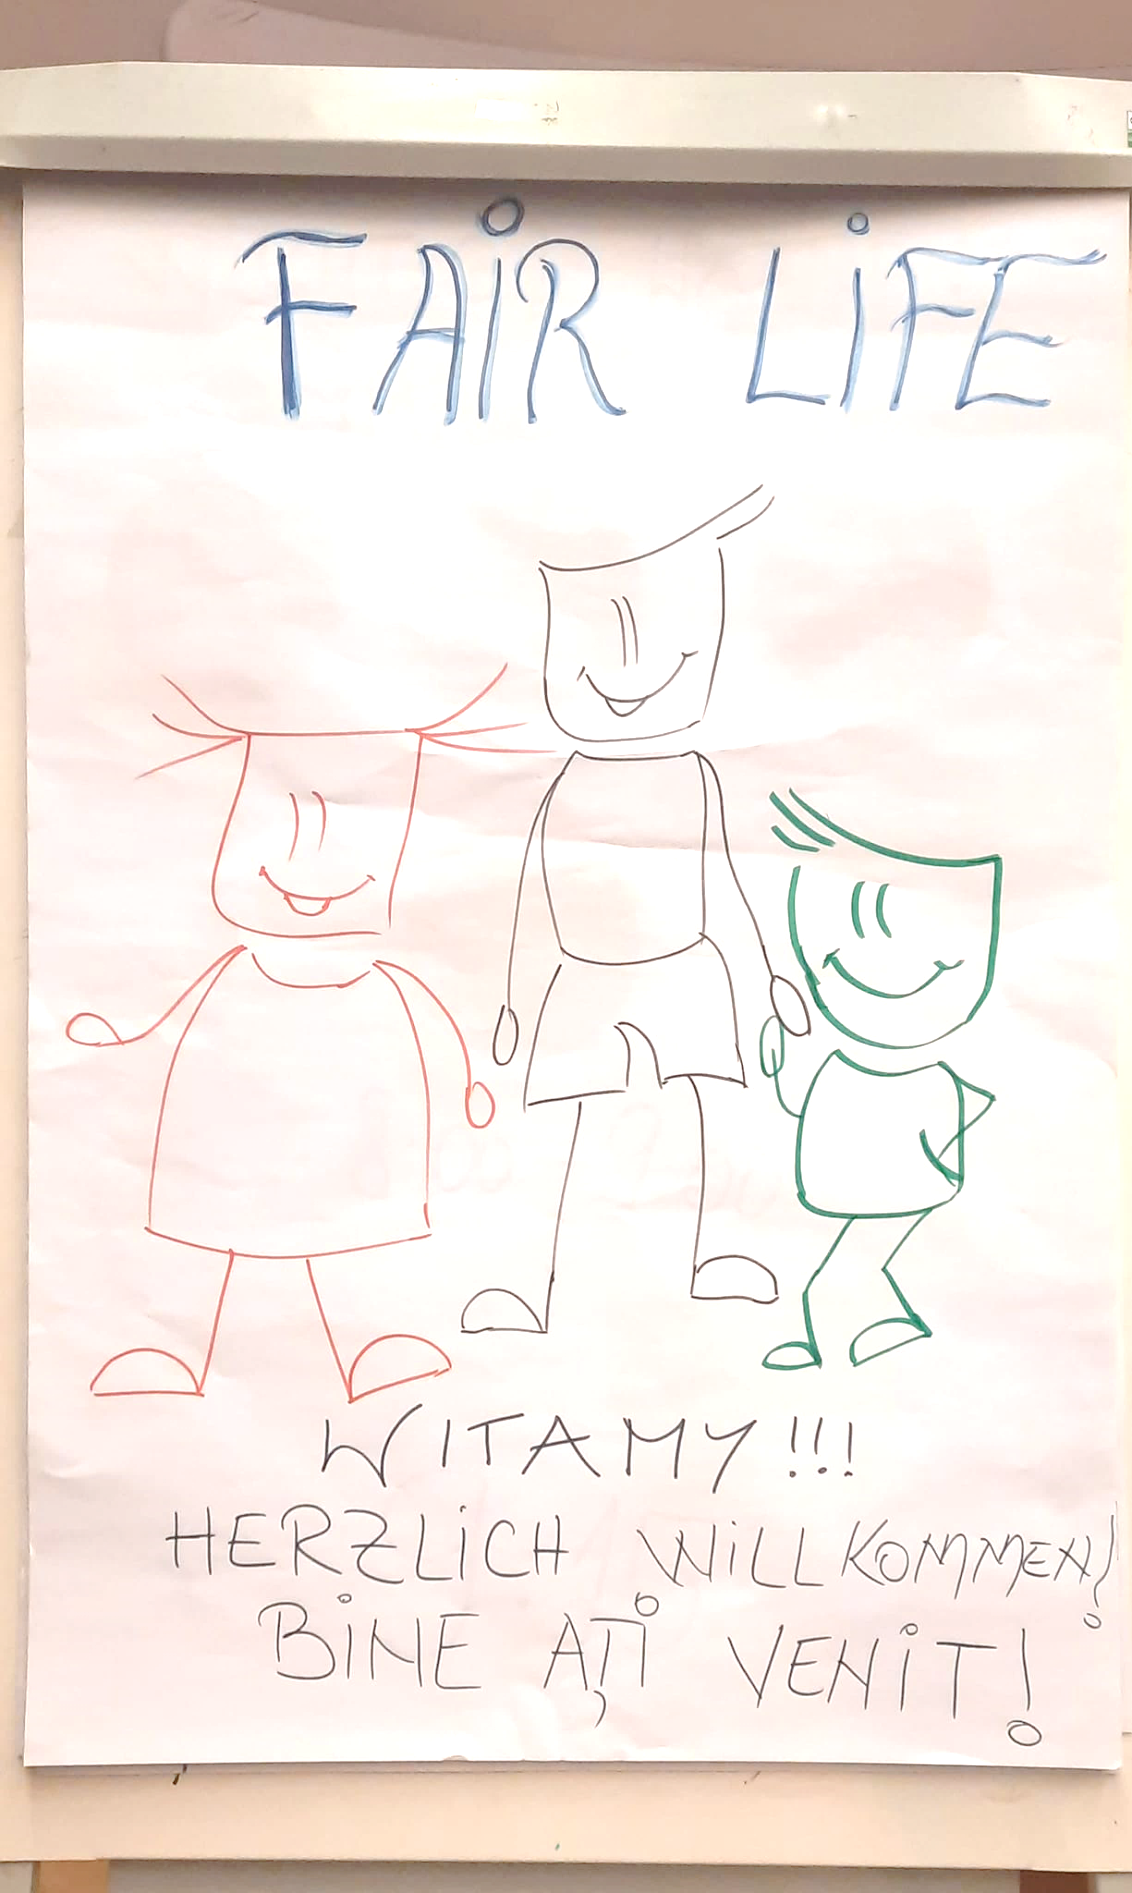 FAiR LiFE
WITAMY!!!
HERZLiCH WiLLKOMMEN!
BiNE AȚi VENiT!